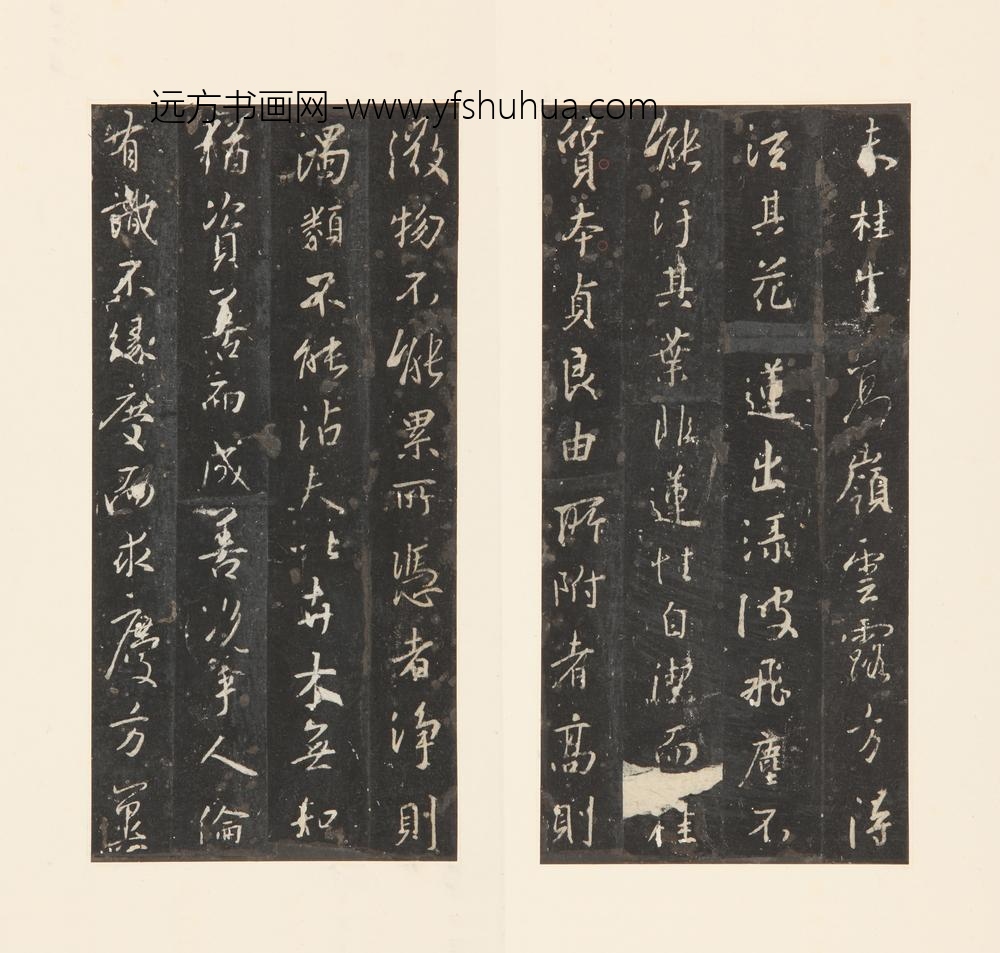 远方书画网-www.yfshuhua.com
夫桂生高嶺雲露方得
泫其花蓮出淥波飛塵不
能汙其葉非蓮性自潔而桂
質本貞良由所附者高則
微物不能累所憑者淨則
濁類不能沾夫以卉木無知
猶資善而成善況乎人倫
有識不緣慶而求慶方冀